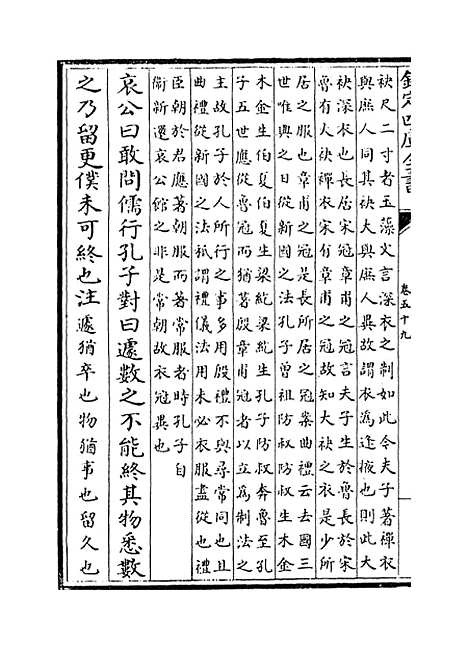 欽定四庫全書
卷五十九
袂尺二寸者玉藻文言深衣之制如此今夫子著襌衣
與庶人同其袂大與庶人異故謂衣為逢掖也則此大
袂深衣也長居宋冠章甫之冠言夫子生於魯長於宋
魯有大袂襌衣宋有章甫之冠故知大袂之衣是少所
居之服也章甫之冠是長所居之冠案曲禮云去國三
世唯興之日從新國之法孔子曾祖防叔防叔生木金
木金生伯夏伯夏生梁紇梁紇生孔子防叔奔魯至孔
子五世應從魯冠而猶著殷章甫冠者以立為制法之
主故孔子於人所行之事多用殷禮不與尋常同也且
曲禮從新國之法秖謂禮儀法用未必衣服盡從也禮
臣朝於君應著朝服而著常服者時孔子自
衛新還哀公館之非是常朝故衣冠異也
哀公曰敢問儒行孔子對曰遽數之不能終其物悉數
之乃留更僕未可終也注遽猶卒也物猶事也留久也